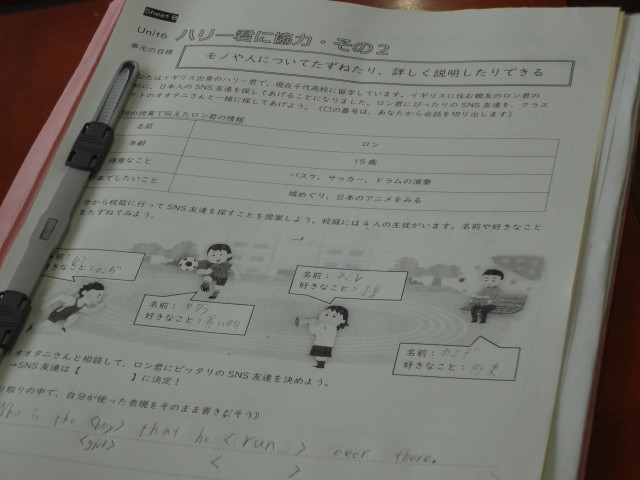 Sheet B
Unit6 ハリー君に協力・その2
単元の目標
モノや人についてたずねたり、詳しく説明したりできる
なたはイギリス出身のハリー君で、現在千代高校に留学しています。イギリスに住む親友のロン君の
めに、日本人のSNS友達を探してあげることになりました。ロン君にぴったりのSNS友達を、クラス
ートのオオタニさんと一緒に探してあげよう。(□の番号は、あなたから会話を切り出します)
の授業で伝えたロン君の情報
名前 ロン
年齢 15歳
得意なこと バスケ、サッカー、ドラムの演奏
本でしたいこと 城めぐり、日本のアニメをみる
今から校庭に行ってSNS友達を探すことを提案しよう。校庭には4人の生徒がいます。名前や好きなこと
をたずねてみよう。
好きなこと:
名前:
好きなこと:
名前:
好きなこと:
名前:カエデ
好きなこと:
オオタニさんと相談して、ロン君にピッタリのSNS友達を決めよう。
→SNS友達は【 】に決定!
り取りの中で、自分が使った表現をそのまま書きだそう》
Who is the <boy> that he <run > over there.
<girl> < >